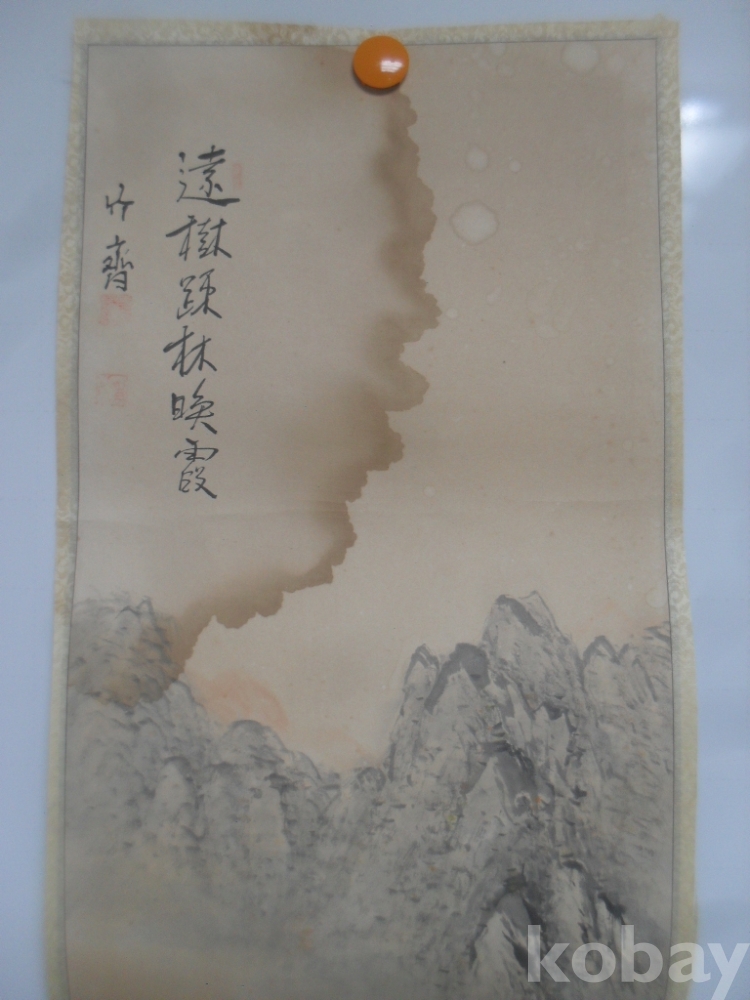 遠樹踈林映霞
竹齋
kobay